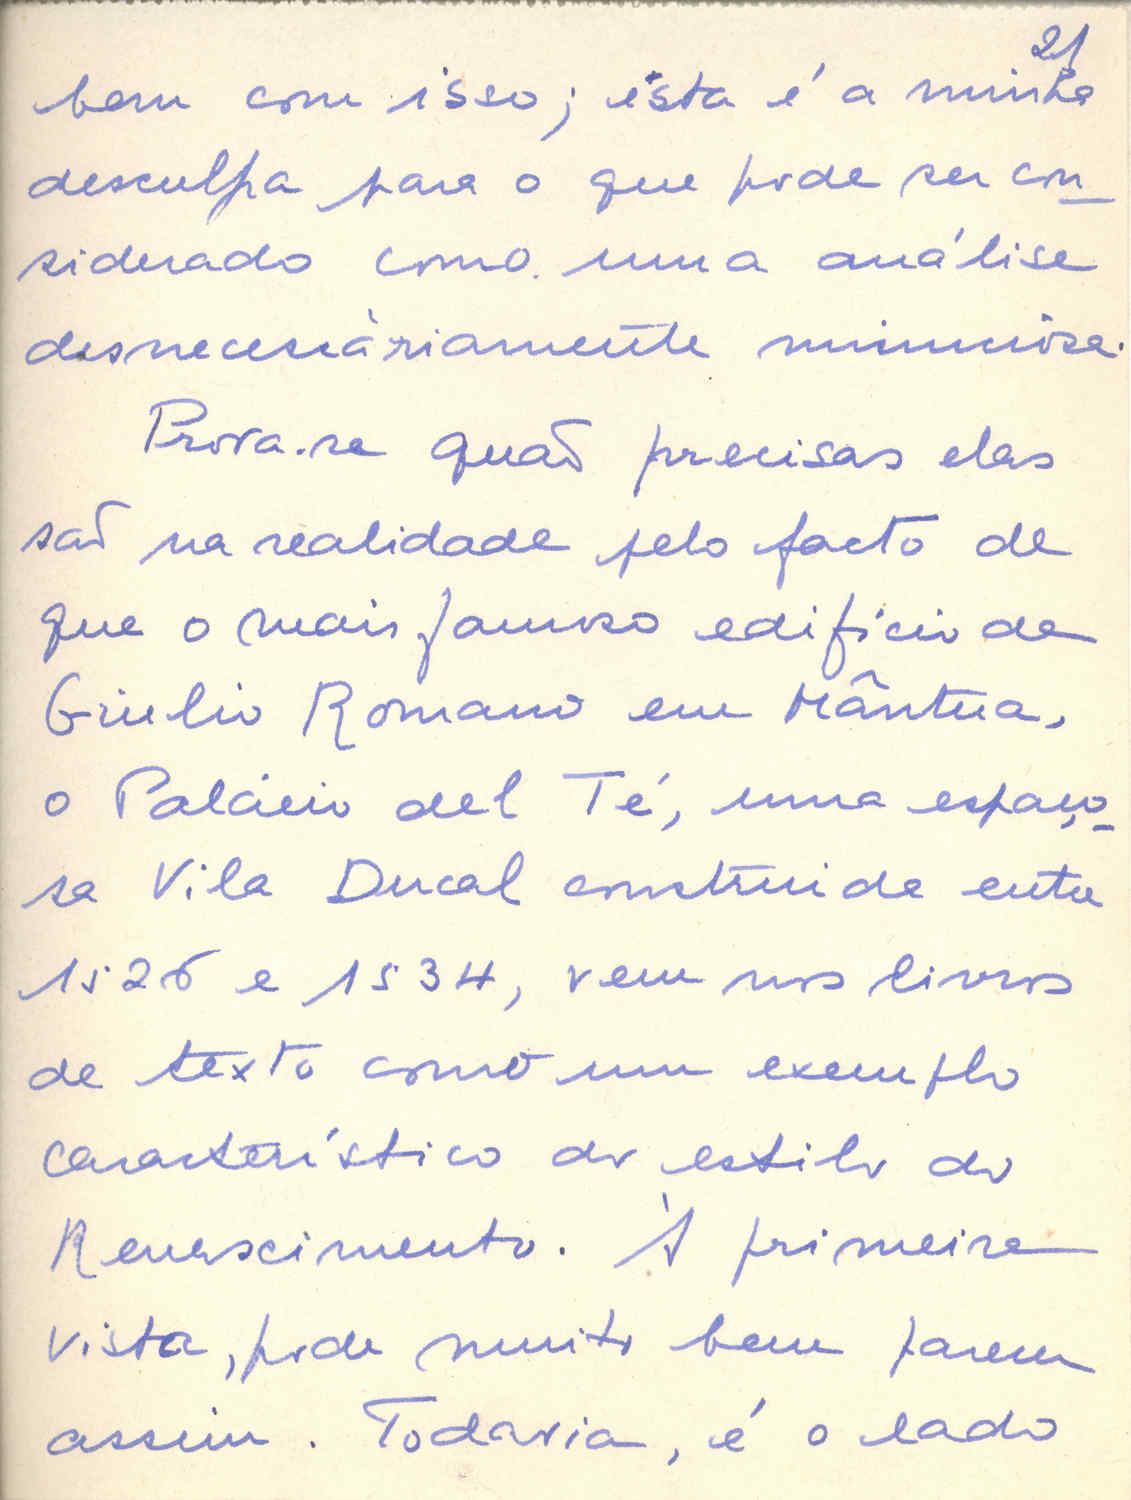 21
bem com isso; esta é a minha
desculpa para o que pode ser con-
siderado como uma análise
desnecessàriamente minuciosa.
Prova-se quão precisas elas
são na realidade pelo facto de
que o mais famoso edifício de
Giulio Romano em Mântua,
o Palácio del Té, uma espaço-
sa Vila Ducal construida entre
1526 e 1534, vem nos livros
de texto como um exemplo
característico do estilo do
Renascimento. À primeira
vista, pode muito bem parecer
assim. Todavia, é o lado